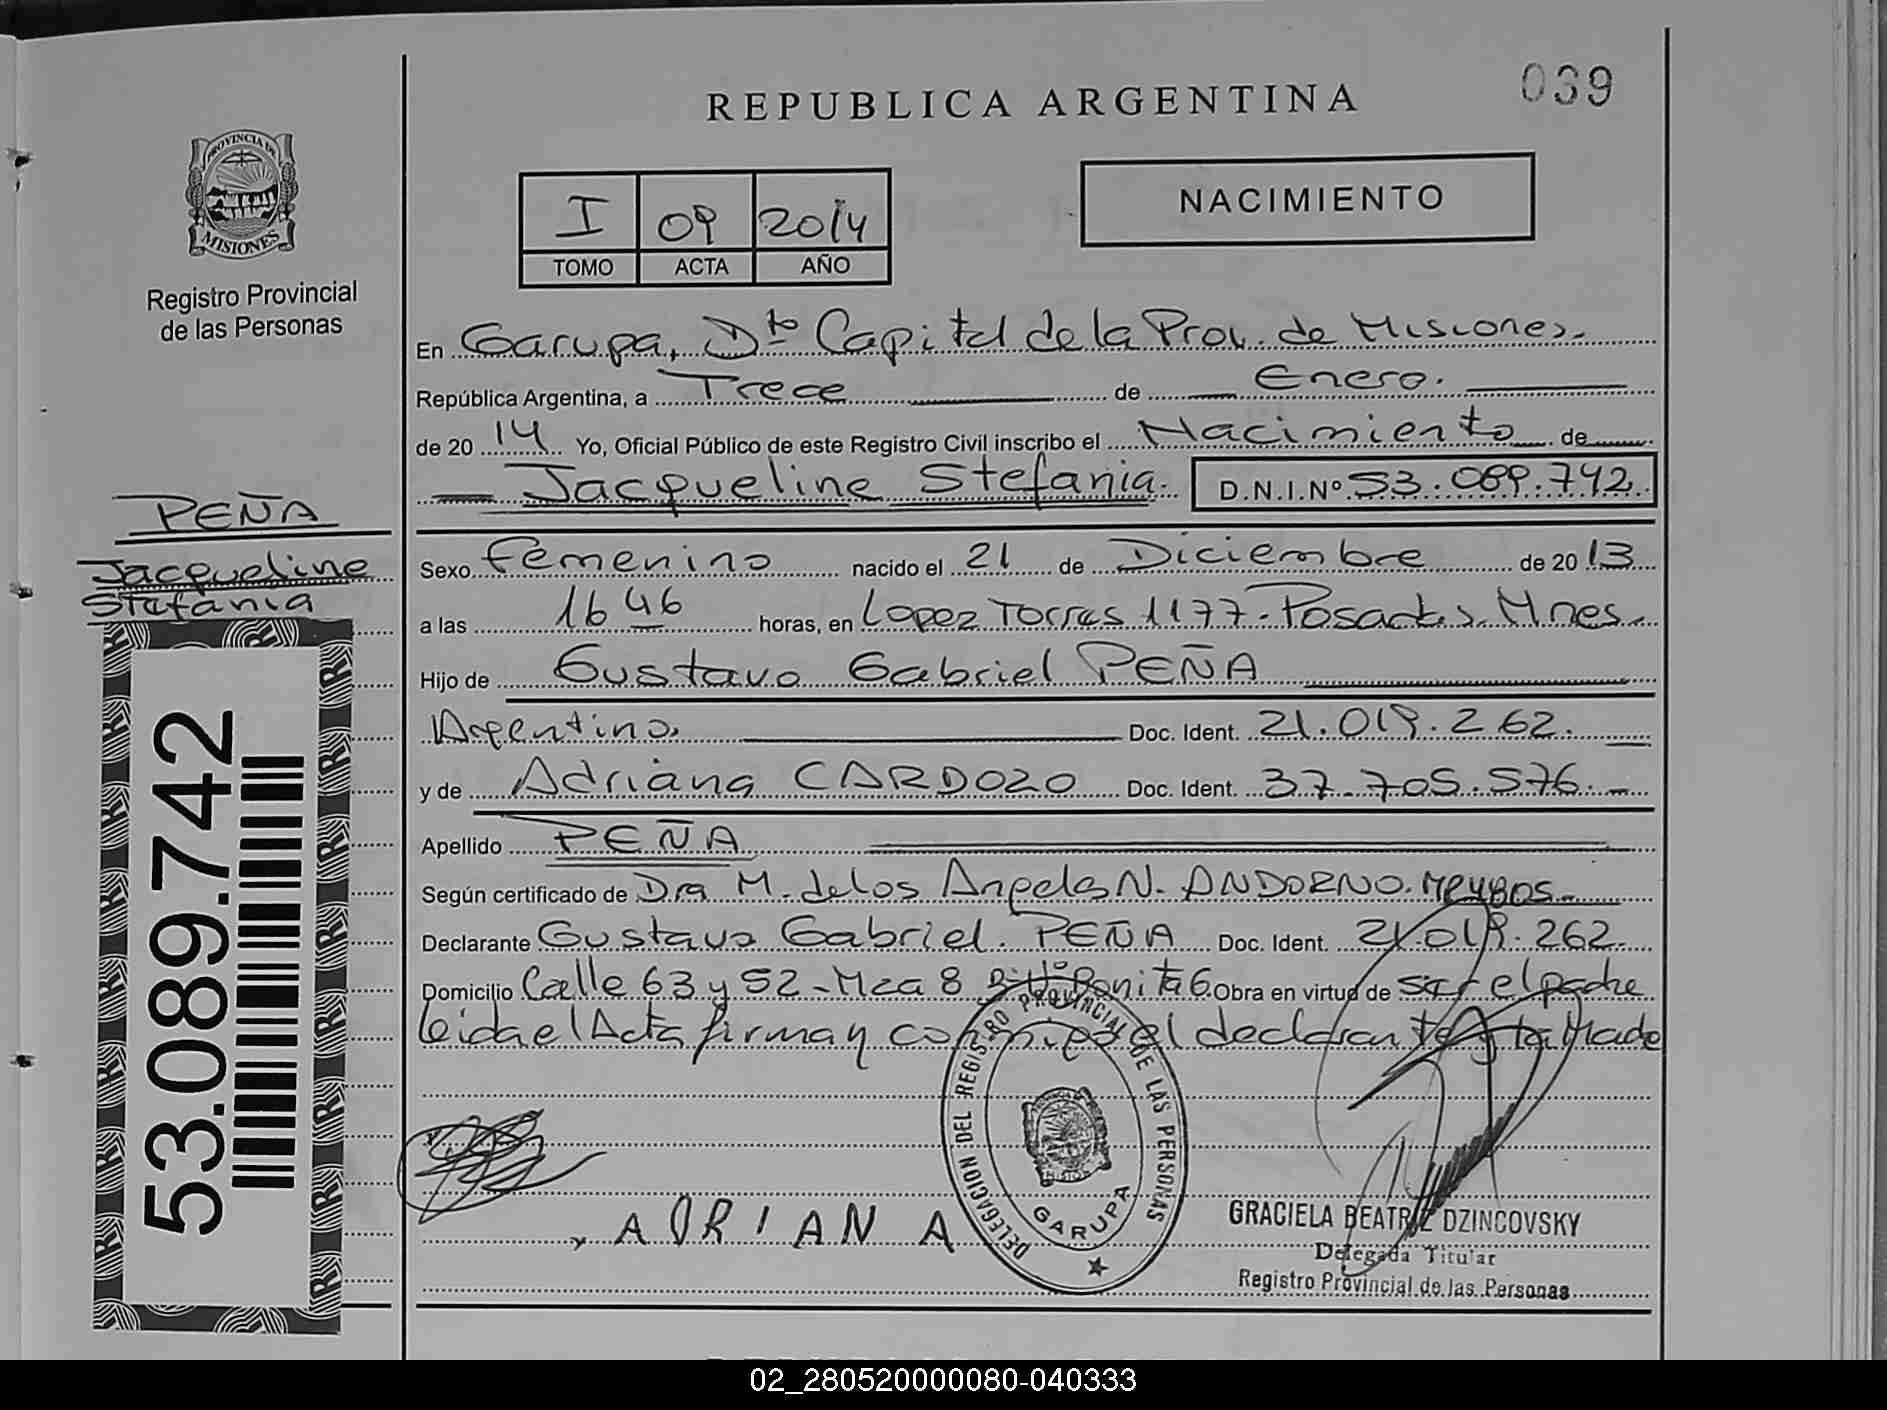 039
REPUBLICA ARGENTINA
PROVINCIA DE
MISIONES
Registro Provincial
de las Personas
I 09 2014
TOMO ACTA AÑO
NACIMIENTO
En Garupa, Dto Capital de la Prov. de Misiones.
República Argentina, a Trece de Enero.
de 20 14 Yo, Oficial Público de este Registro Civil inscribo el Nacimiento de
Jacqueline Stefania. D.N.I.Nº 53.089.742
PEÑA
Jacqueline
Stefania
53.089.742
Sexo Femenino nacido el 21 de Diciembre de 20 13
a las 16 46 horas, en Lopez Torres 1177. Posadas. Mnes.
Hijo de Gustavo Gabriel PEÑA
Argentino. Doc. Ident. 21.019.262.
y de Adriana CARDOZO Doc. Ident. 37.705.576.
Apellido PEÑA
Según certificado de Dra M. de los Angeles N. ANDORNO.
Declarante Gustavo Gabriel PEÑA Doc. Ident. 21.019.262.
Domicilio Calle 63 y 52 - Mza 8 Bonita 6 Obra en virtud de ser el padre
leida el Acta firman conmigo el declarante y la Madre
DELEGACION DEL REGISTRO PROVINCIAL DE LAS PERSONAS
GARUPA
ADRIANA
GRACIELA BEATRIZ DZINCOVSKY
Delegada Titular
Registro Provincial de las Personas
02_280520000080-040333